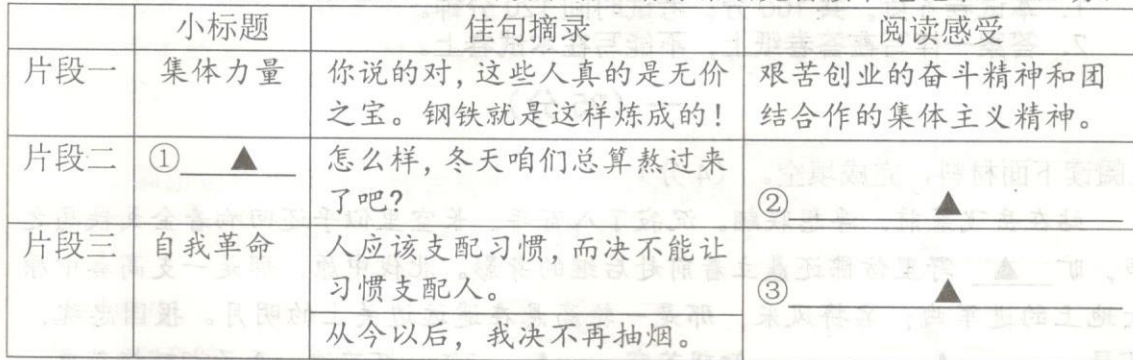 小标题 佳句摘录 阅读感受
片段一 集体力量 你说的对，这些人真的是无价 艰苦创业的奋斗精神和团
之宝。钢铁就是这样炼成的！ 结合作的集体主义精神。
片段二 ① ▲ 怎么样，冬天咱们总算熬过来
了吧？ ② ▲
片段三 自我革命 人应该支配习惯，而决不能让
习惯支配人。 ③ ▲
从今以后，我决不再抽烟。